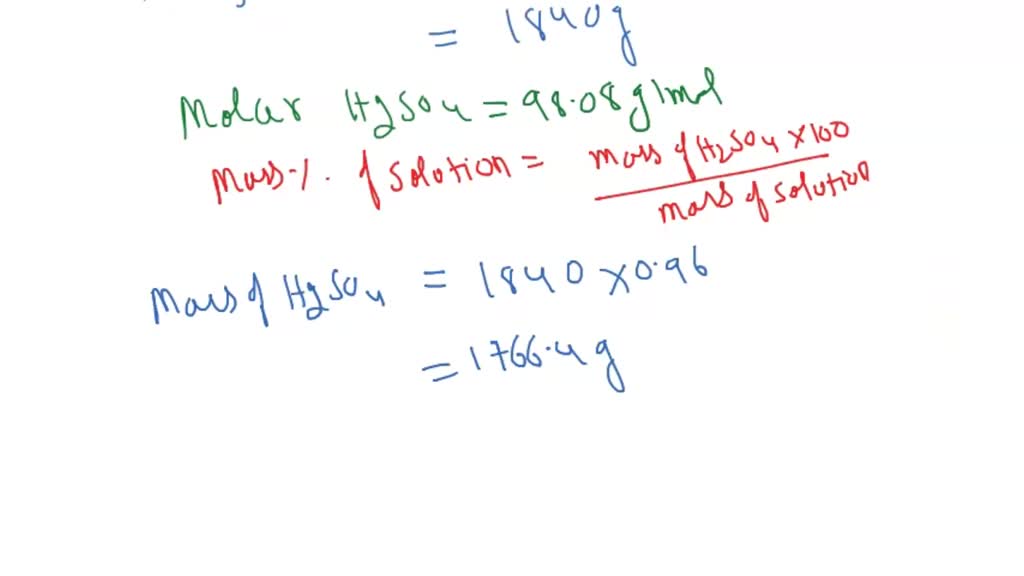 = 1840g
Molar H2SO4 = 98.08 g/mol
Mass %. of solution = mass of H2SO4 × 100
mass of solution
Mass of H2SO4 = 1840 × 0.96
= 1766.4 g